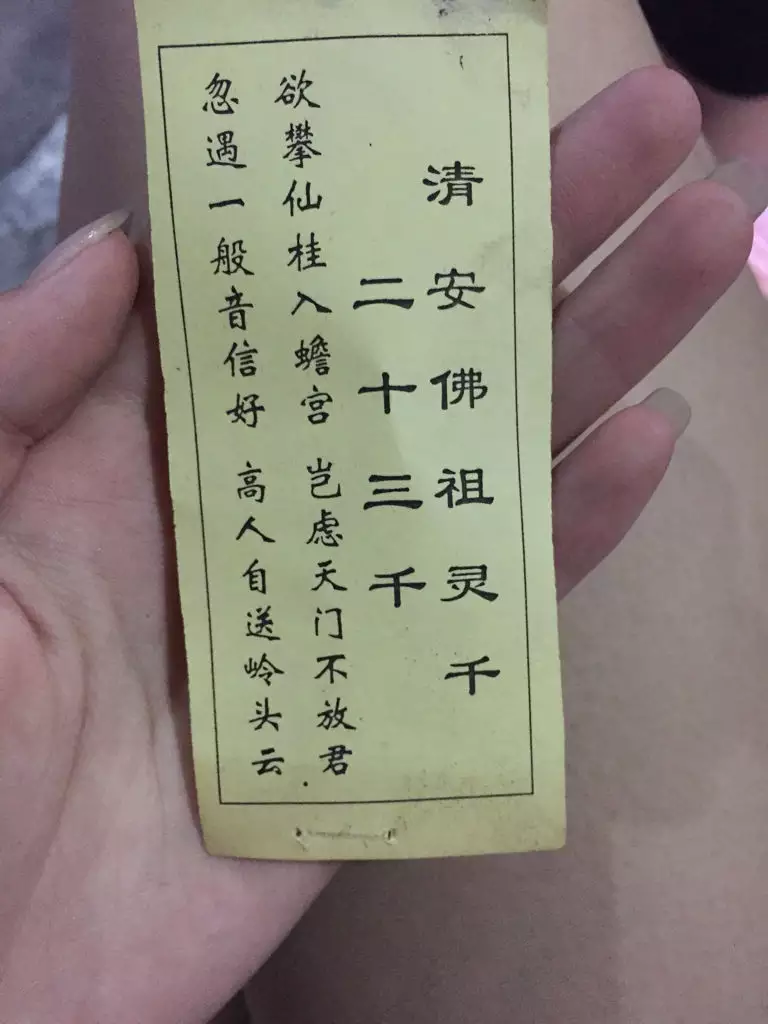 清安佛祖灵千
二十三千
欲攀仙桂入蟾宫 岂虑天门不放君
忽遇一般音信好 高人自送岭头云